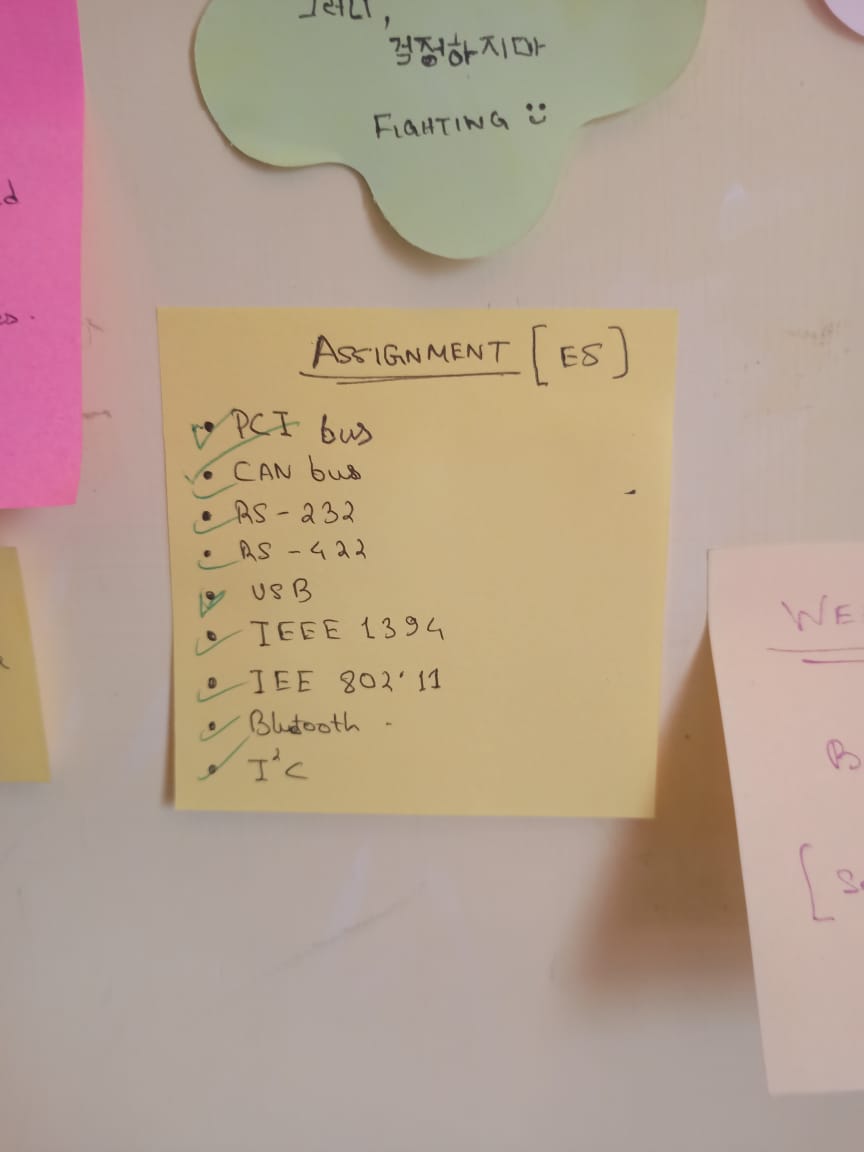 그러니,
걱정하지마
FIGHTING
ASSIGNMENT [ES]
PCI bus
CAN bus
RS-232
RS-422
USB
IEEE 1394
IEE 802.11
Blutooth
I²C
WE
B